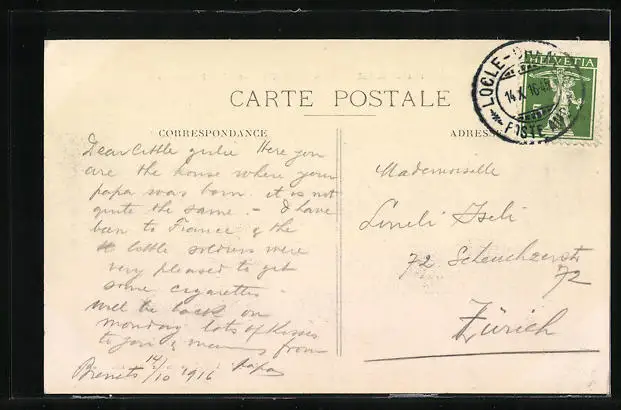 CARTE POSTALE
CORRESPONDANCE
Dear little
Here you
are the house where your
papa was born. it is not
quite the same. - I have
been to France & the
little soldiers were
very pleased to get
some cigarettes.
Will be back on
monday lots of kisses
to you & mum from
Brenets 14/10 1916 Papa
ADRESSE
Mademoiselle
Iseli
72 Scheuchzerstr
72
Zürich
HELVETIA
LOCLE-
14.X.16